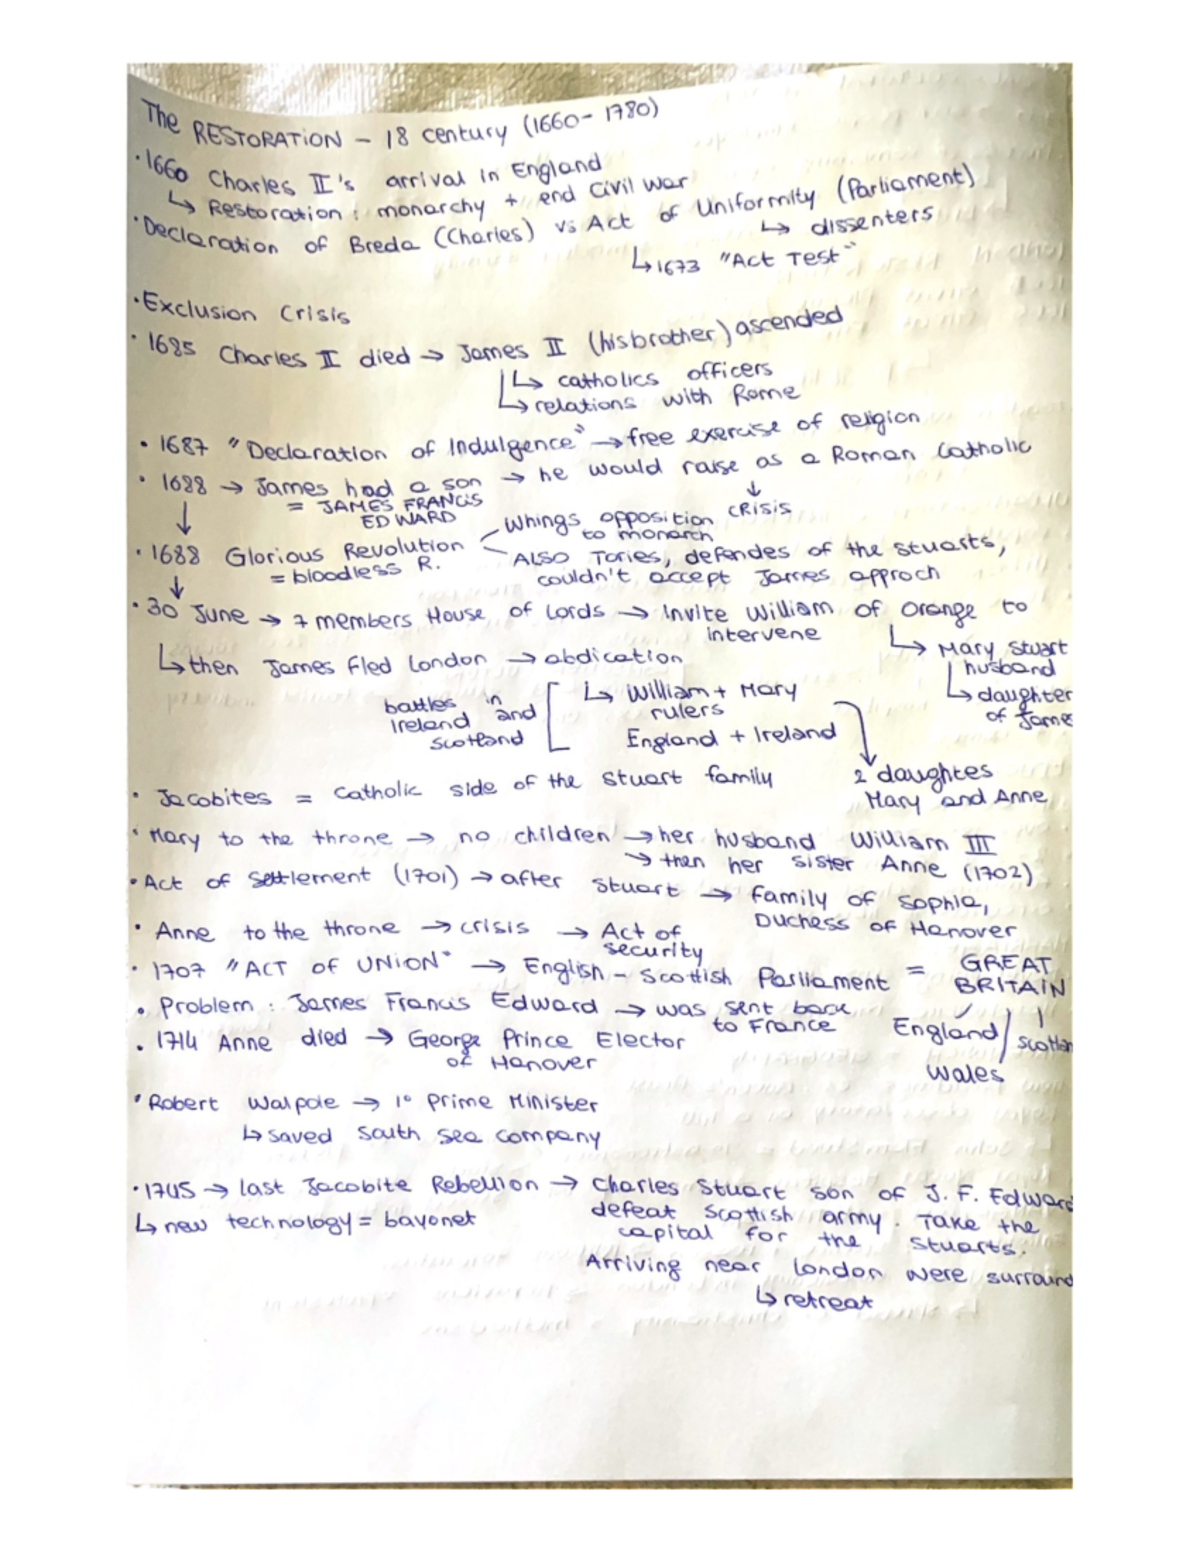 The RESTORATION – 18 century (1660-1780)
·1660 Charles II's arrival in England
↳ Restoration: monarchy + end Civil War
·Declaration of Breda (Charles) vs Act of Uniformity (Parliament)
↳ dissenters
↳1673 "Act Test"
·Exclusion Crisis
·1685 Charles II died → James II (his brother) ascended
↳ catholics officers
↳ relations with Rome
· 1687 "Declaration of Indulgence" → free exercise of religion
· 1688 → James had a son → he would raise as a Roman Catholic
= JAMES FRANCIS EDWARD
↓ CRISIS
↓
· 1688 Glorious Revolution
= bloodless R.
Whings opposition to monarch
ALSO Tories, defendes of the Stuarts,
couldn't accept James approch
↓
· 30 June → 7 members House of Lords → Invite William of Orange to
intervene
↳ Mary Stuart
husband
↳ daughter
of James
↳ then James fled London → abdication
battles in
Ireland and
Scotland
↳ William + Mary
rulers
England + Ireland
2 daughtes
Mary and Anne
· Jacobites = Catholic side of the Stuart family
· Mary to the throne → no children → her husband William III
→ then her sister Anne (1702)
· Act of Settlement (1701) → after Stuart → family of Sophia,
Duchess of Hanover
· Anne to the throne → crisis → Act of
security
· 1707 "ACT OF UNION" → English – Scottish Parliament = GREAT
BRITAIN
· Problem: James Francis Edward → was sent back
to France
England / Scotlan
Wales
· 1714 Anne died → George Prince Elector
of Hanover
· Robert Walpole → 1° Prime Minister
↳ saved South Sea Company
·1745 → last Jacobite Rebellion → Charles Stuart son of J. F. Edward
↳ new technology = bayonet
defeat Scottish army. Take the
capital for the Stuarts.
Arriving near London were surround
↳ retreat